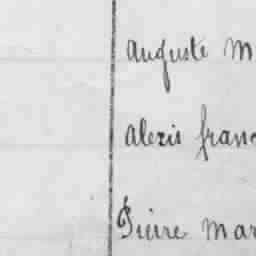 Auguste M
Alexis fran
Pierre Mar